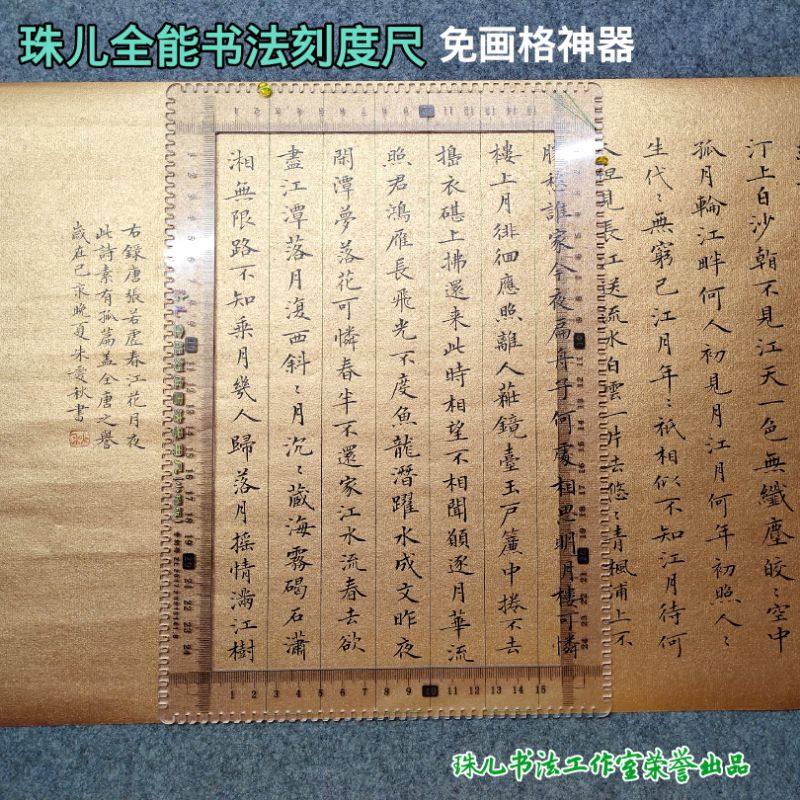 珠儿全能书法刻度尺 免画格神器
汀上白沙看不見江天一色無纖塵皎〻空中
孤月輪江畔何人初見月江月何年初照人〻
生代〻無窮已江月年〻祇相似不知江月待何
見長江送流水白雲一片去悠〻青楓浦上不
勝愁誰家今夜扁舟子何處相思明月樓可憐
樓上月徘徊應照離人粧鏡臺玉戶簾中捲不去
搗衣砧上拂還来此時相望不相聞願逐月華流
照君鴻雁長飛光不度魚龍潛躍水成文昨夜
閑潭夢落花可憐春半不還家江水流春去欲
盡江潭落月復西斜〻月沉〻藏海霧碣石瀟
湘無限路不知乘月幾人歸落月搖情滿江樹
右錄唐張若虛春江花月夜
此詩素有孤篇盖全唐之譽
歲在己亥晚夏朱愛秋書
1 2 3 4 5 6 7 8 9 10 11 12 13 14 15
珠儿书法工作室荣誉出品